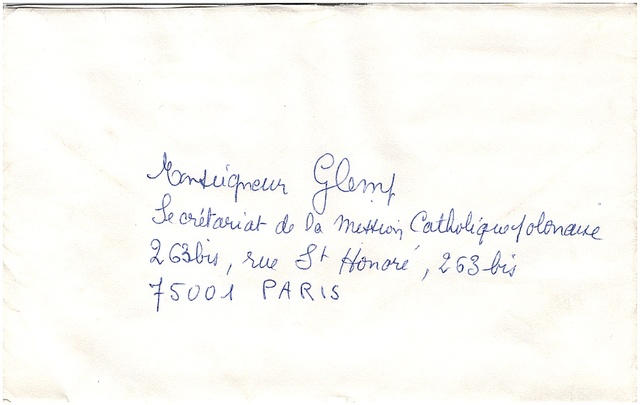 Monseigneur Glemp
Secrétariat de la Mission Catholique Polonaise
263bis, rue St Honoré, 263 bis
75001 PARIS